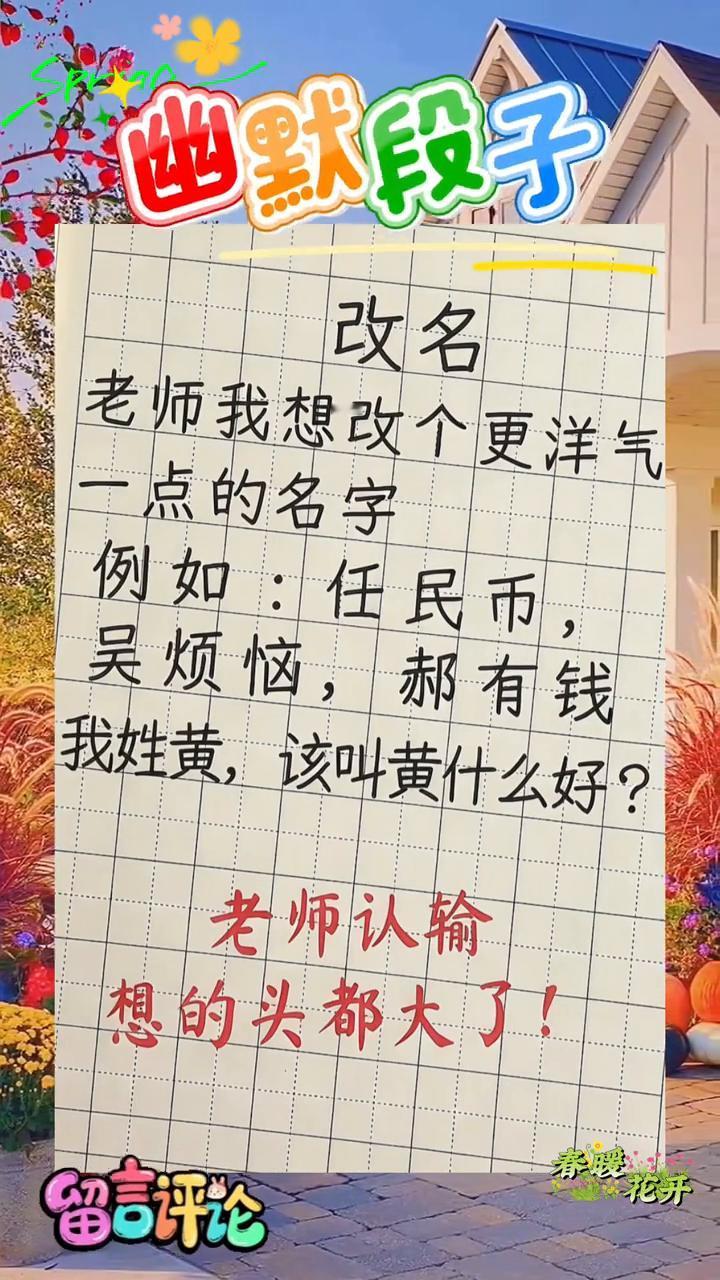 Spring
幽默段子
改名
老师我想改个更洋气
一点的名字
例如：任民币，
吴烦恼，郝有钱
我姓黄，该叫黄什么好？
老师认输
想的头都大了！
留言评论
春暖
花开